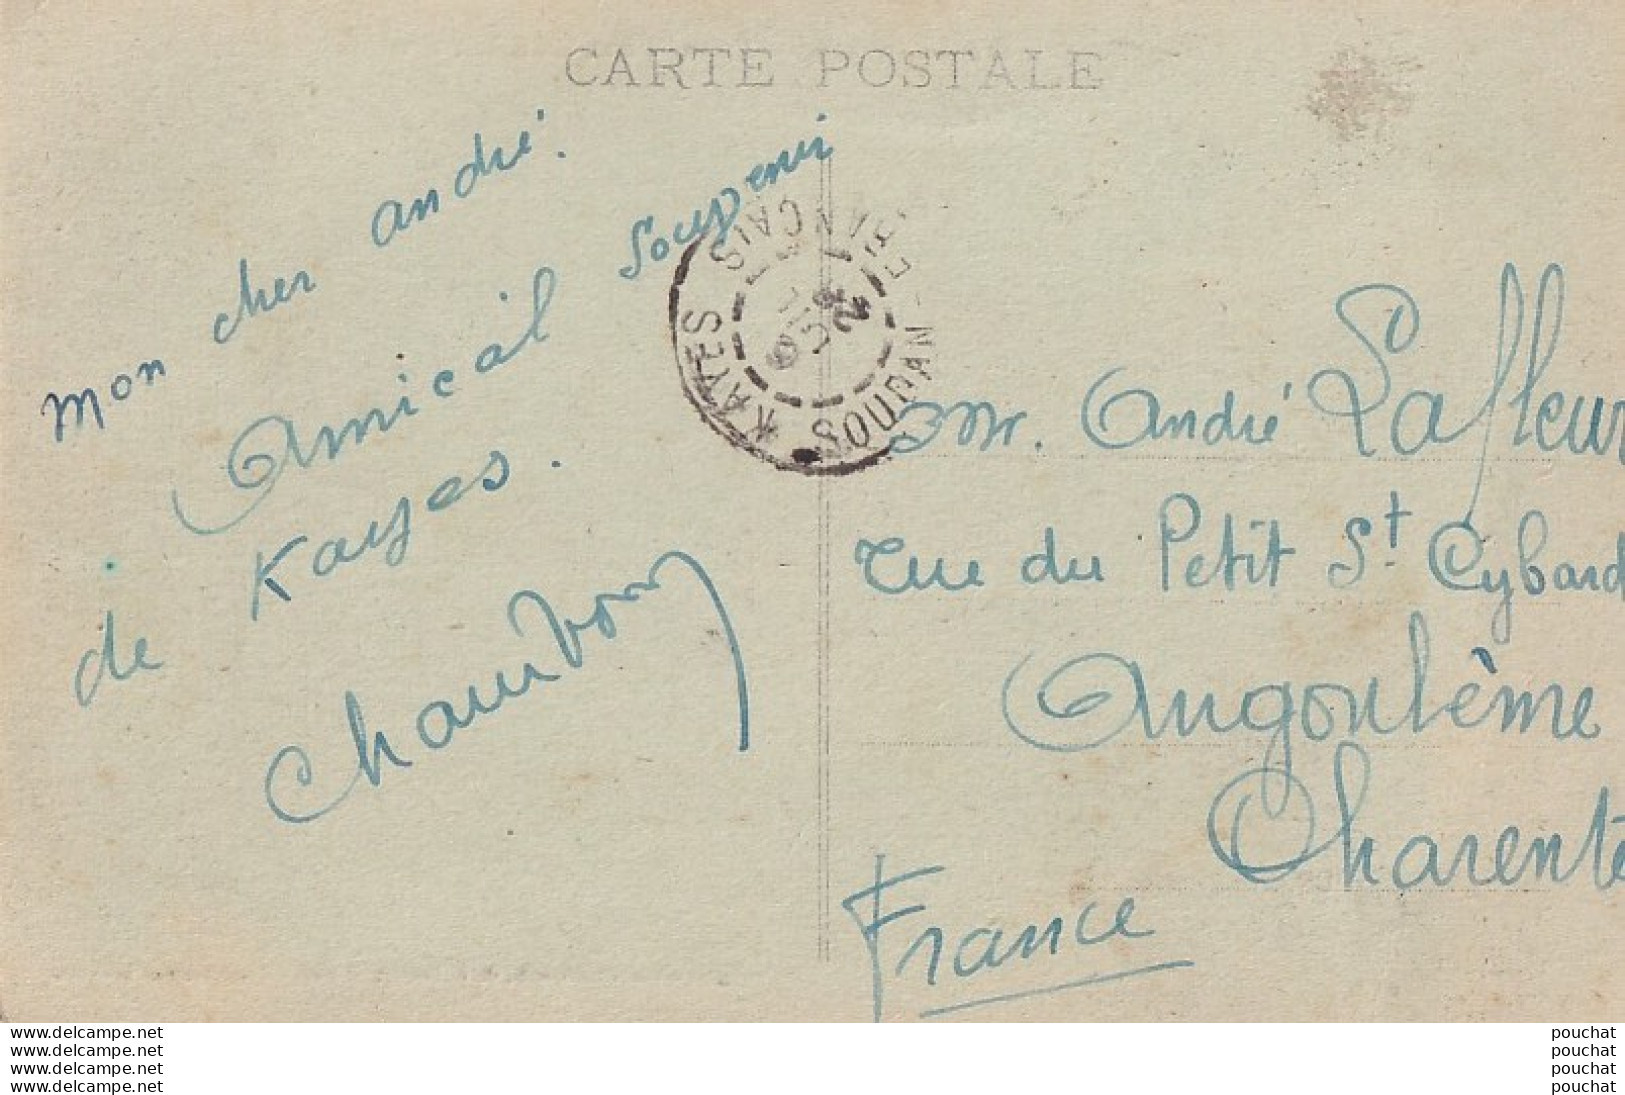 CARTE POSTALE
Mon cher andré.
Amical Souvenir
de Kayes.
KAYES
SOUDAN - FRANÇAIS
Mr. André Lafleur
rue du Petit St Cybard
Angoulême
Charente
France
www.delcampe.net
www.delcampe.net
www.delcampe.net
www.delcampe.net
pouchat
pouchat
pouchat
pouchat